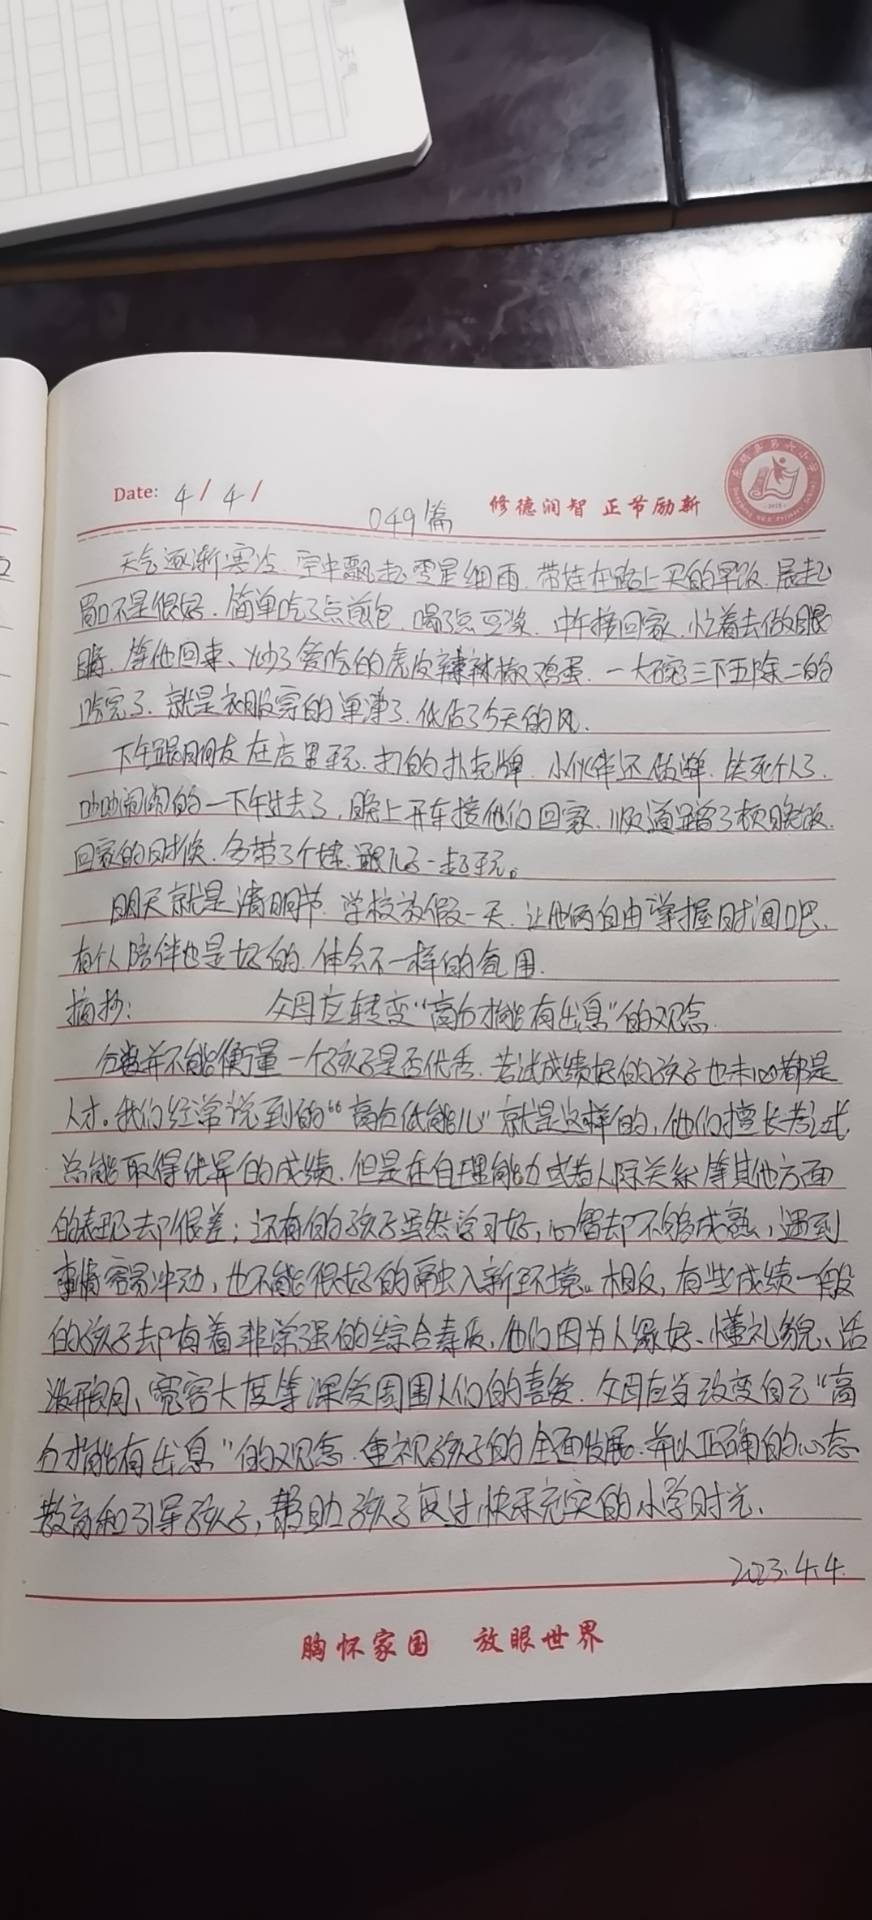 Date: 4/4/
049篇
修德润智 正节励新
天气逐渐寒冷.空中飘起零星细雨.带娃在路上买的早饭.晨起
胃口不是很好.简单吃了点煎包.喝了点豆浆.中午接回家.忙着去做眼
睛.等他回来、炒了爱吃的虎皮辣椒鸡蛋.一大碗三下五除二的
吃完了.就是衣服穿的单薄了.低估了今天的风.
下午跟朋友在店里玩.打的扑克牌.小伙伴还做弊.笑死个人了.
吵吵闹闹的一下午过去了,晚上开车接他们回家.顺道蹭了顿晚饭.
回家的时候.另带了个娃.跟儿子一起玩。
明天就是清明节.学校放假一天.让他俩自由掌握时间吧.
有个人陪伴也是好的.体会不一样的氛围.
摘抄: 父母应转变“高分才能有出息”的观念.
分数并不能衡量一个孩子是否优秀.考试成绩好的孩子也未必都是
人才。我们经常说到的“高分低能儿”就是这样的,他们擅长考试,
总能取得优异的成绩.但是在自理能力或者人际关系等其他方面
的表现却很差;还有的孩子虽然学习好,心智却不够成熟,遇到
事情容易冲动,也不能很好的融入新环境。相反,有些成绩一般
的孩子却有着非常强的综合素质,他们因为人缘好、懂礼貌、活
泼开朗、宽容大度等深受周围人们的喜爱.父母应当改变自己“高
分才能有出息”的观念.重视孩子的全面发展.并以正确的心态
教育和引导孩子,帮助孩子度过快乐充实的小学时光.
2023.4.4.
胸怀家国 放眼世界